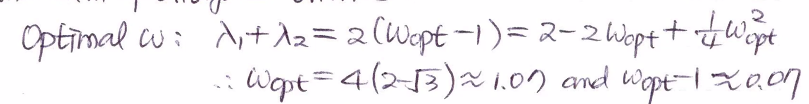 Optimal ω: λ₁+λ₂ = 2(ωopt-1) = 2-2ωopt + ¼ω²opt
∴ ωopt = 4(2-√3) ≈ 1.07 and ωopt-1 ≈ 0.07